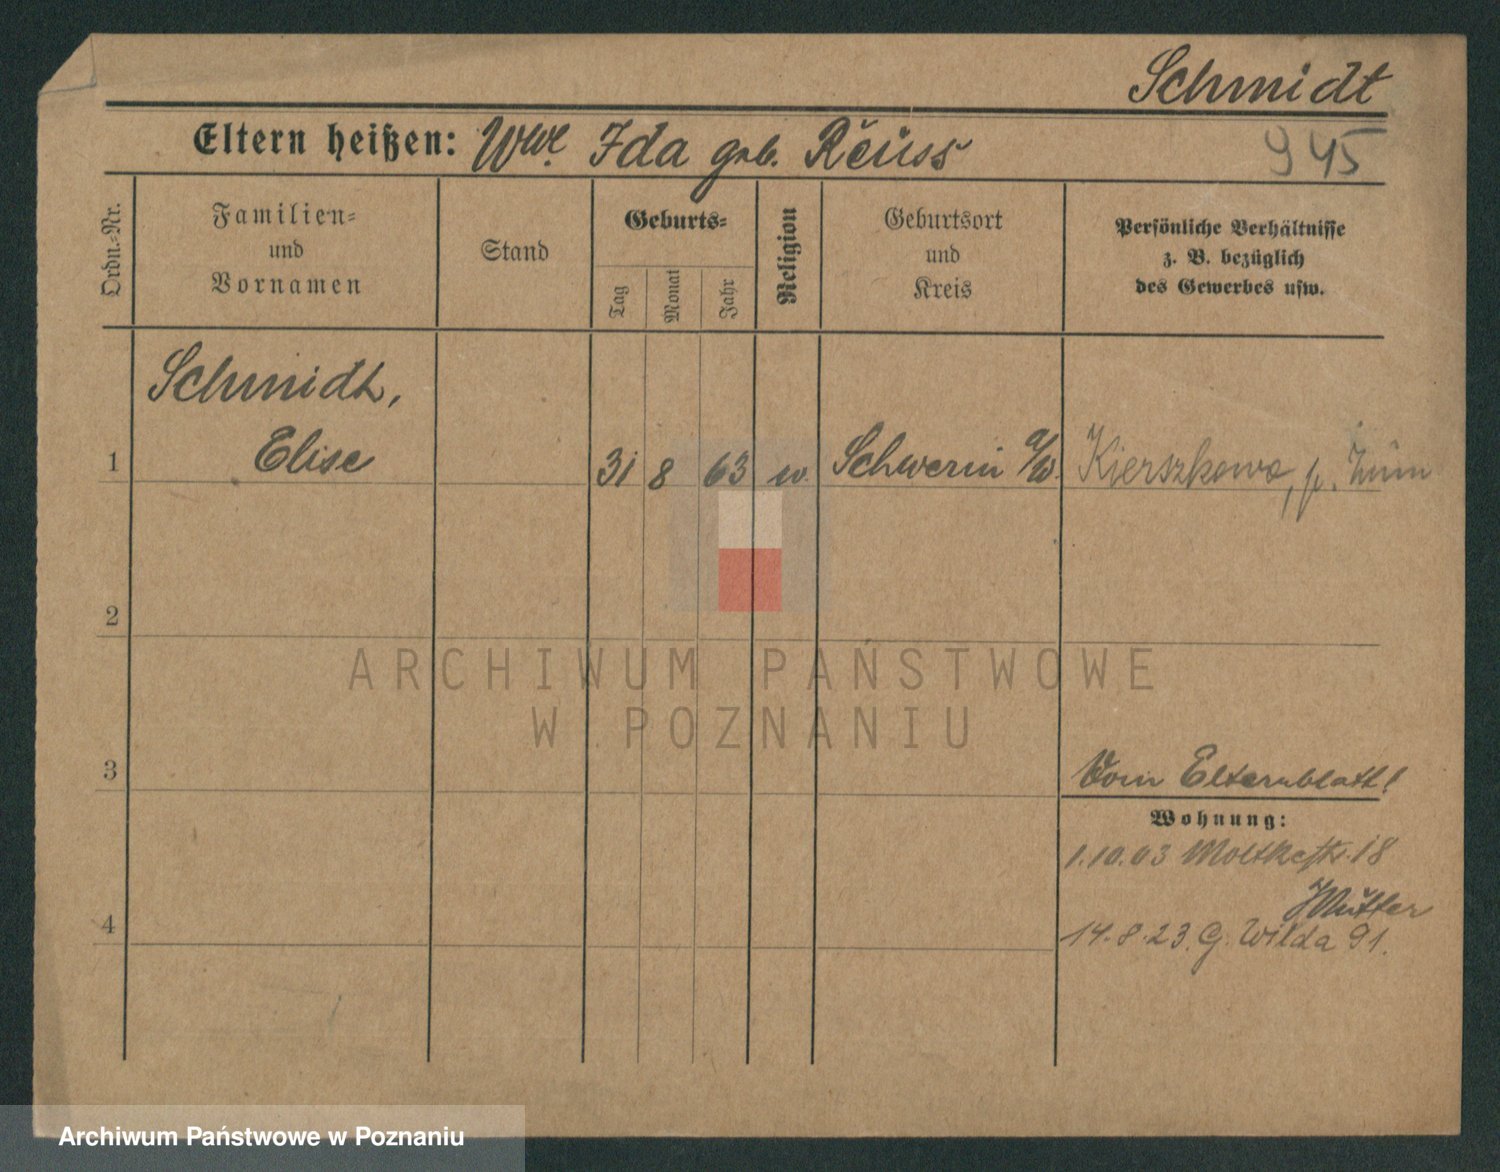 Schmidt
Eltern heißen: Wwe. Ida geb. Reuss
945
Ordn.-Nr.
Familien-
und
Vornamen
Stand
Geburts-
Tag
Monat
Jahr
Religion
Geburtsort
und
Kreis
Persönliche Verhältnisse
z. B. bezüglich
des Gewerbes usw.
Schmidt,
1 Elise 31 8 63 Schwerin a/W. Kierszkowo, p. Żnin
2
3
Vom Elternblatt!
Wohnung:
1.10.03 Moltkestr. 18
Mutter
4
14.8.23. G. Wilda 91.
ARCHIWUM PAŃSTWOWE
W POZNANIU
Archiwum Państwowe w Poznaniu